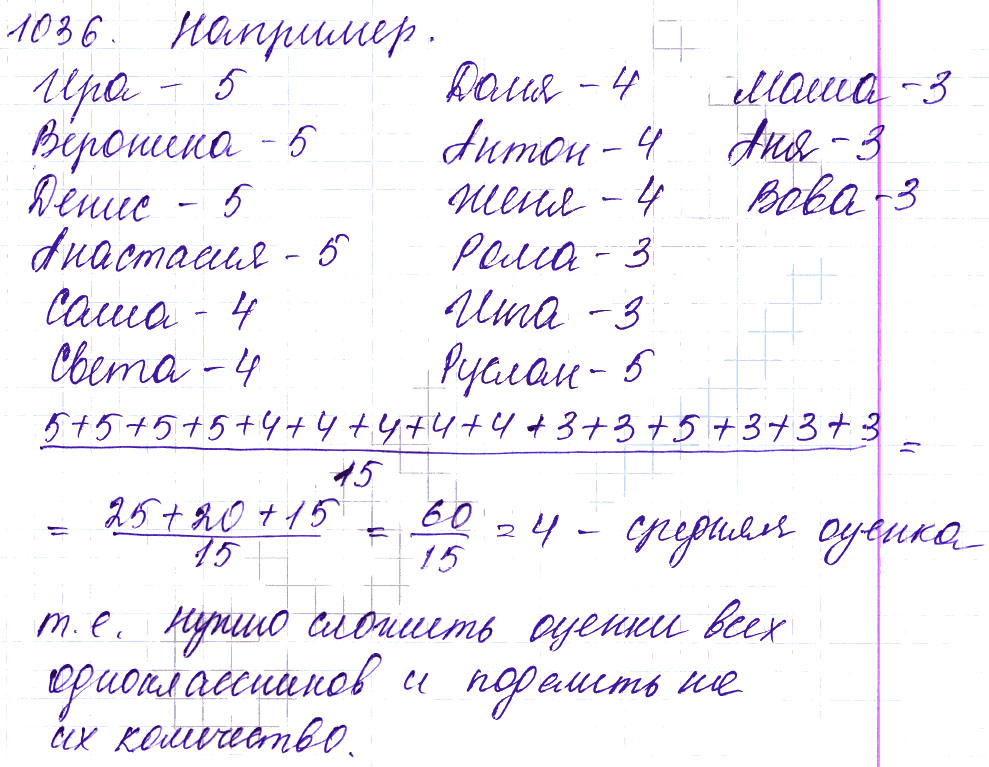 1036. Например.
Ира - 5 Даня - 4 Маша - 3
Вероника - 5 Антон - 4 Аня - 3
Денис - 5 Женя - 4 Вова - 3
Анастасия - 5 Рома - 3
Саша - 4 Инга - 3
Света - 4 Руслан - 5
5+5+5+5+4+4+4+4+4+3+3+5+3+3+3 =
15
= 25+20+15 = 60 = 4 - средняя оценка
15 15
т.е. нужно сложить оценки всех
одноклассников и поделить на
их количество.